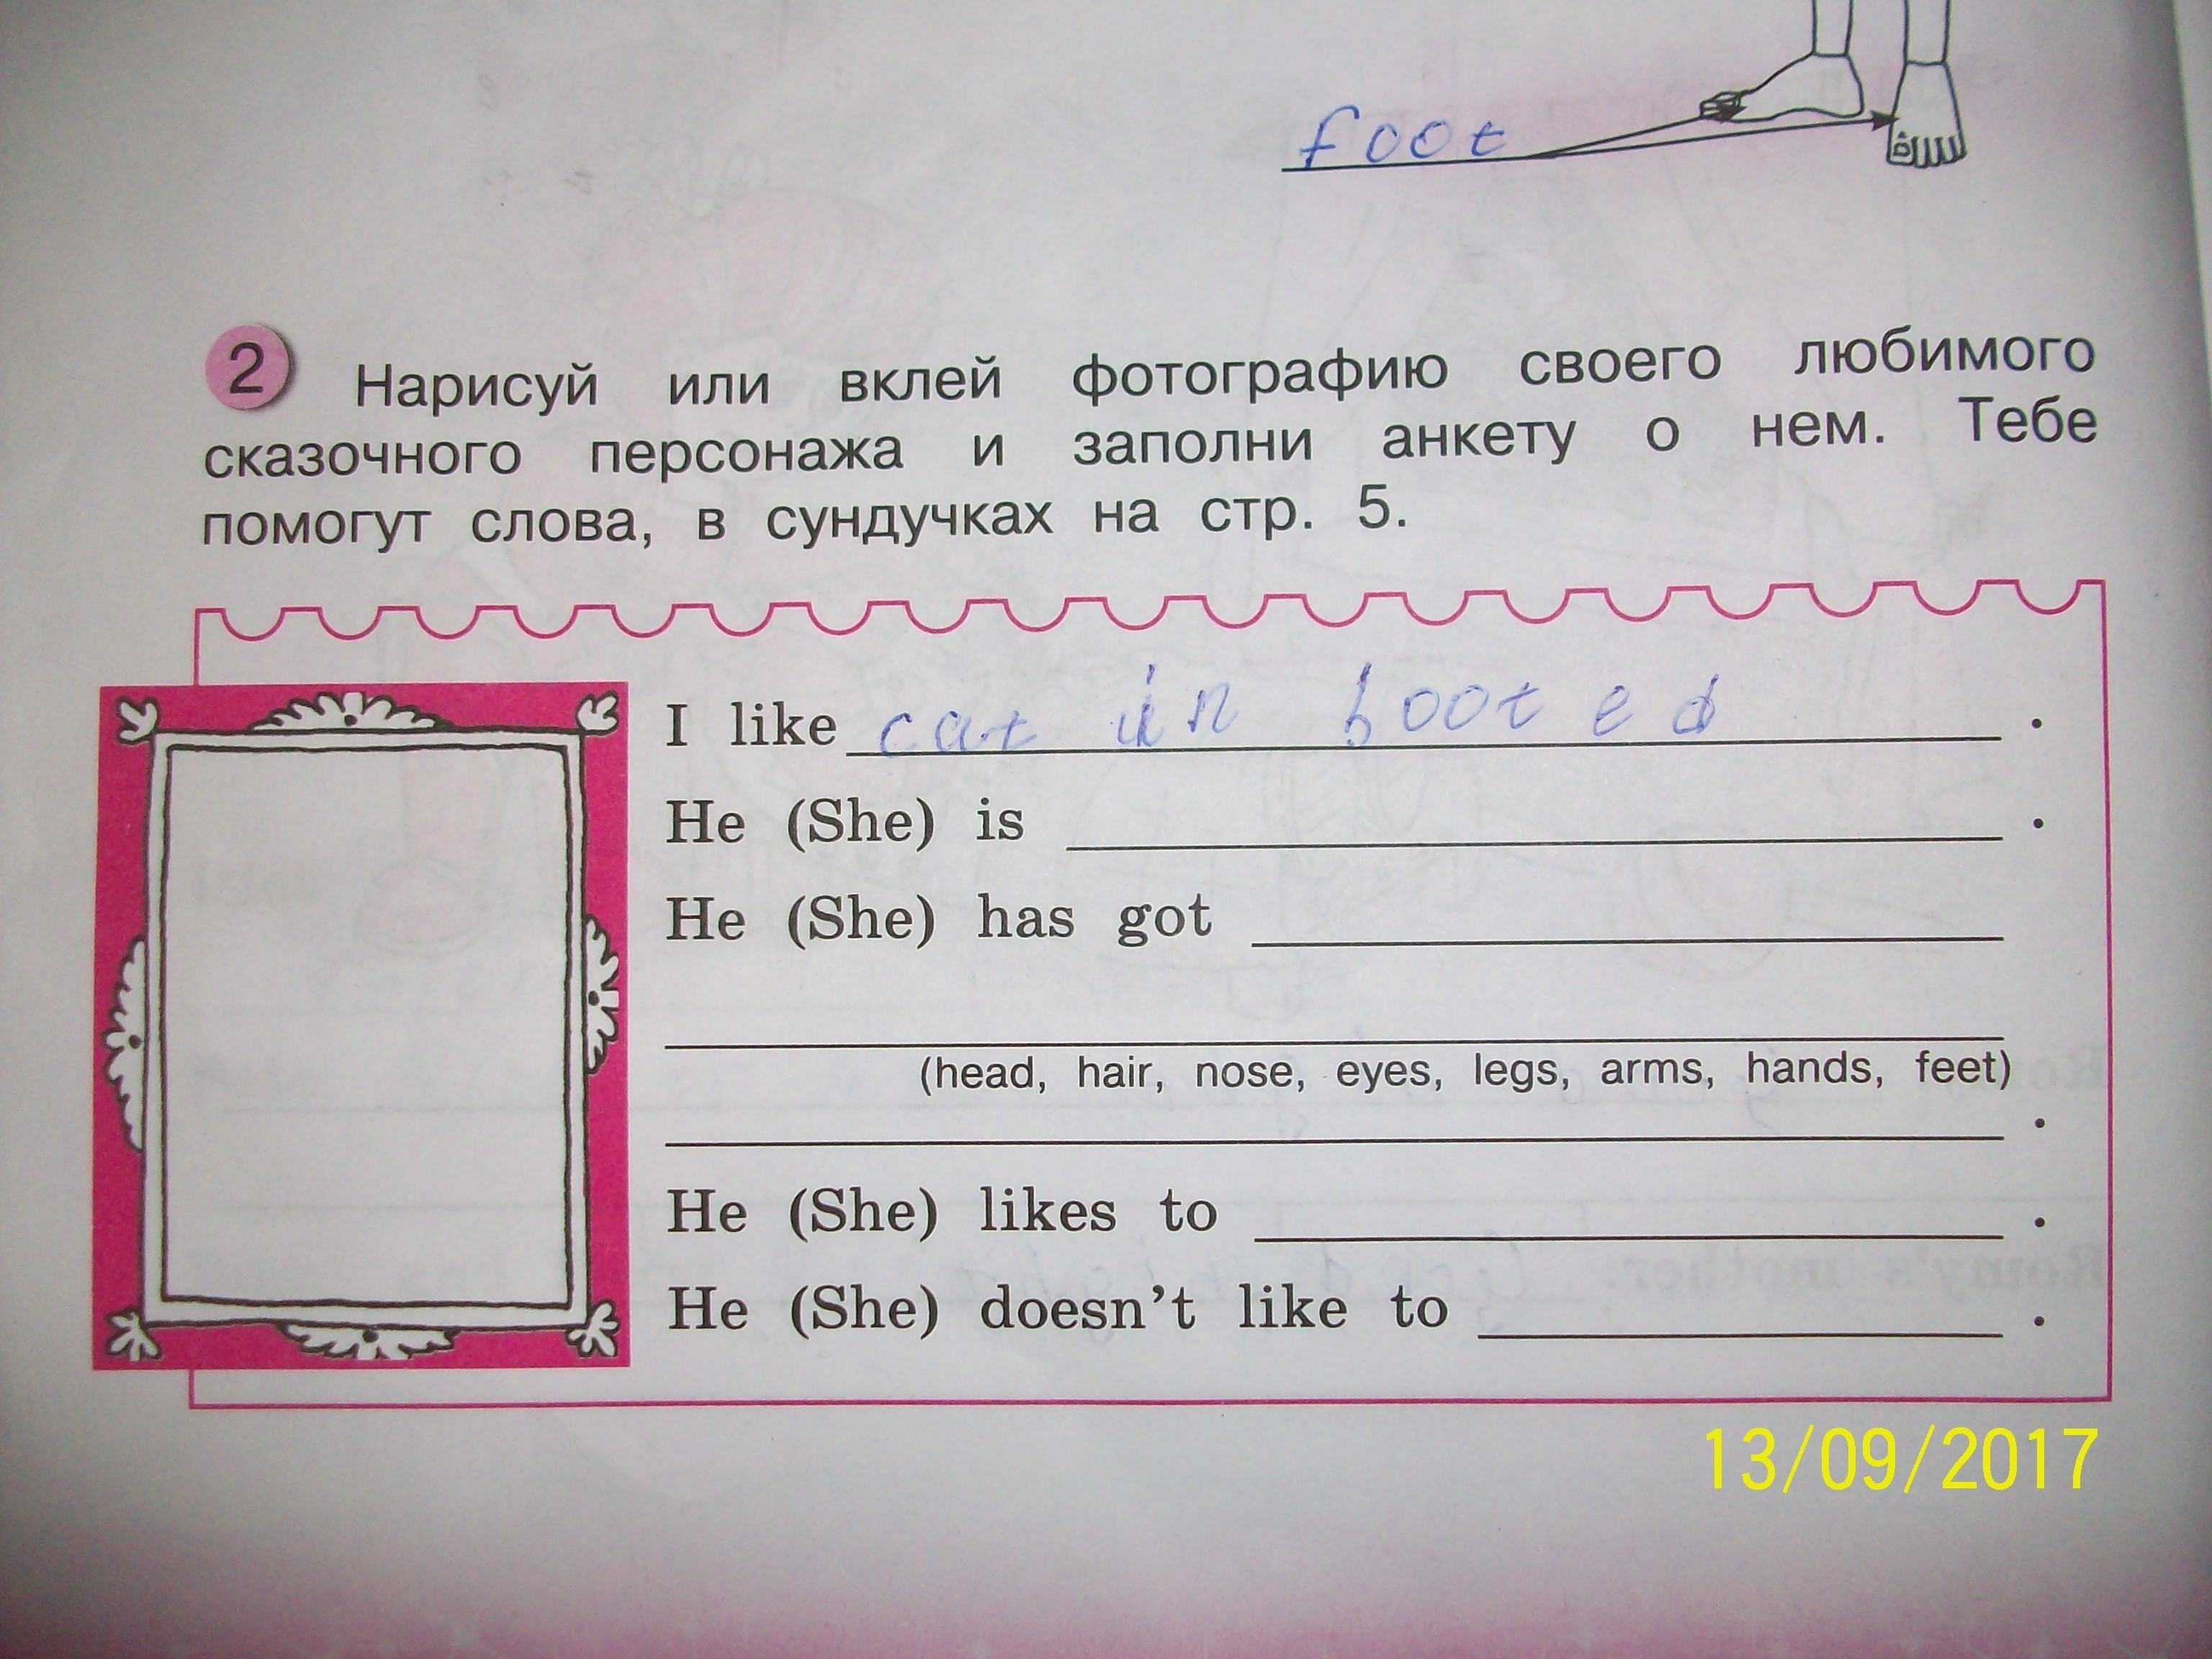 foot
2 Нарисуй или вклей фотографию своего любимого
сказочного персонажа и заполни анкету о нем. Тебе
помогут слова, в сундучках на стр. 5.
I like cat in booted .
He (She) is .
He (She) has got
(head, hair, nose, eyes, legs, arms, hands, feet)
.
He (She) likes to .
He (She) doesn't like to .
13/09/2017